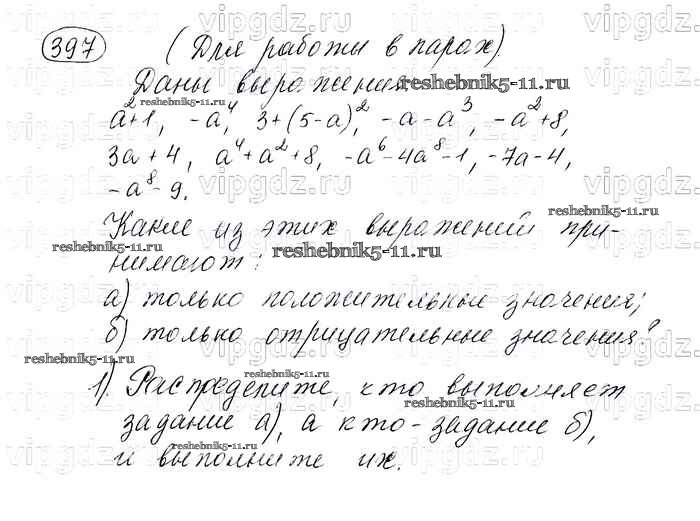 397 (Для работы в парах).
Даны выражения
a²+1, -a⁴, 3+(5-a)², -a-a³, -a²+8,
3a+4, a⁴+a²+8, -a⁶-4a⁸-1, -7a-4,
-a⁸-9.
Какие из этих выражений при-
нимают:
а) только положительные значения;
б) только отрицательные значения?
1) Распределите, кто выполняет
задание а), а кто - задание б),
и выполните их.
vipgdz.ru
reshebnik5-11.ru